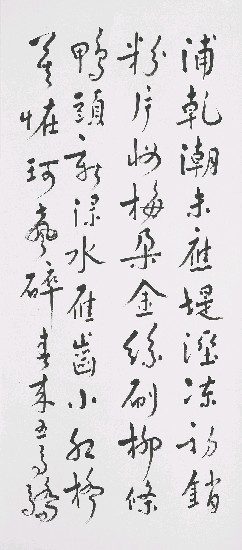 浦乾潮未應堤溼凍初銷
粉片妝梅朵金絲刷柳條
鴨頭新渌水雁齒小紅橋
莫恠珂聲碎春來五馬驕